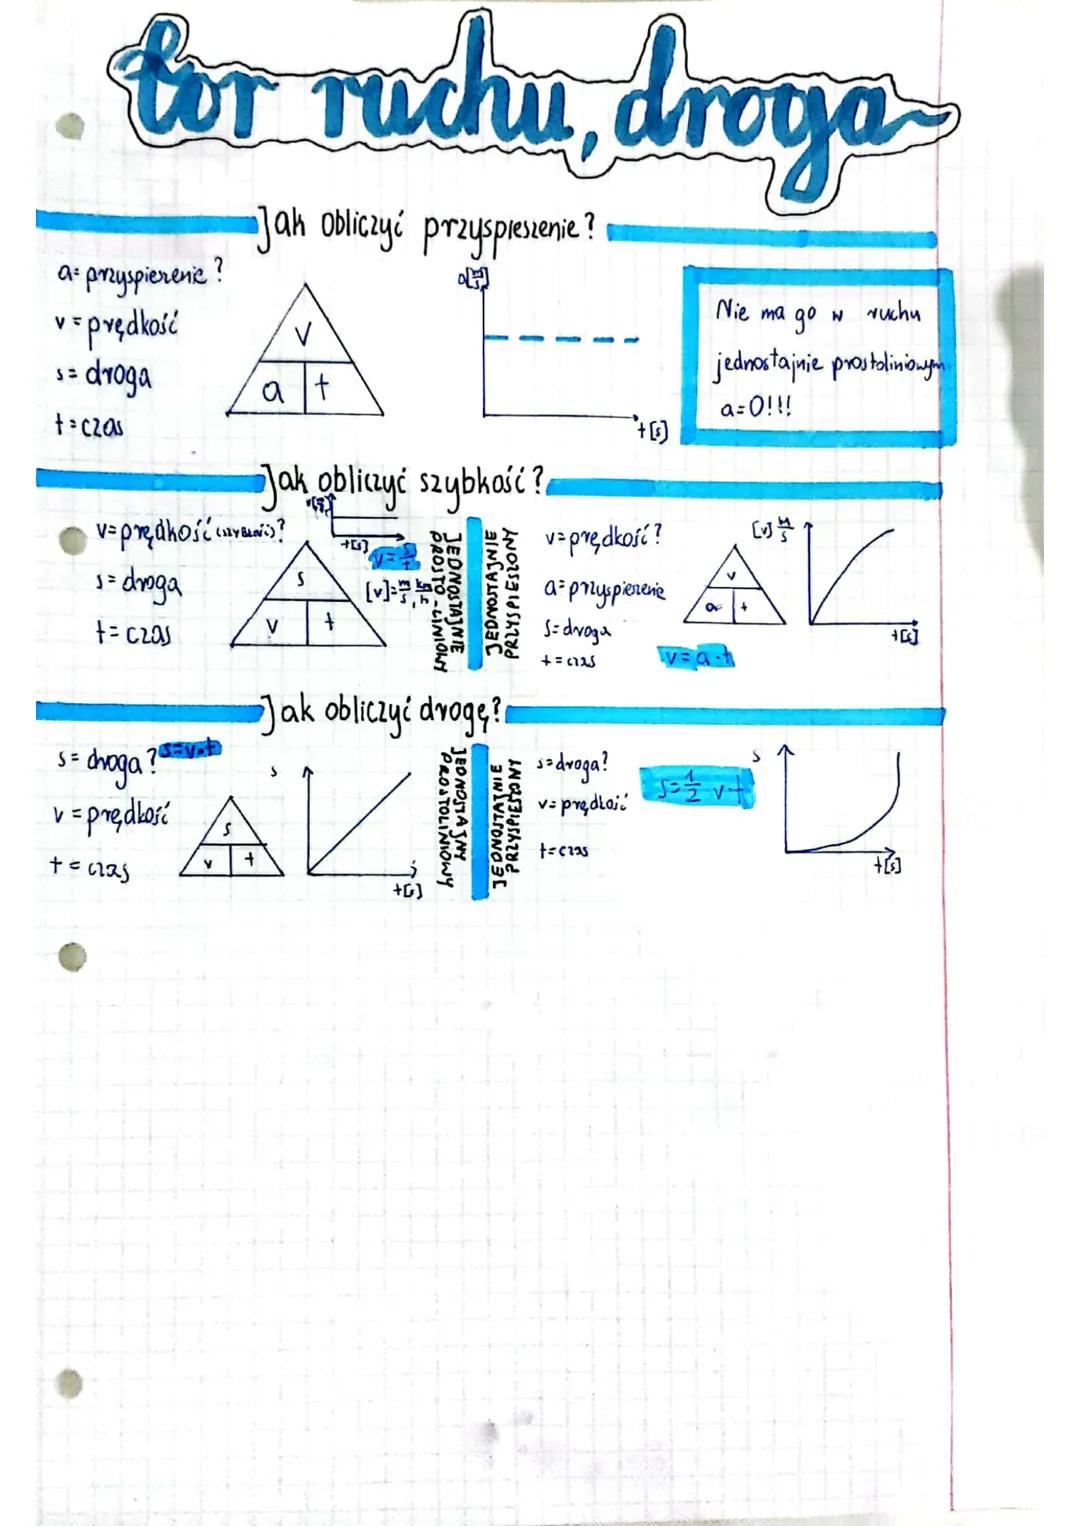 tor ruchu, droga
Jak obliczyć przyspieszenie?
a= przyspieszenie?
v= prędkość
s= droga
t= czas
v
a t
t[s]
Nie ma go w ruchu
jednostajnie prostoliniowym
a=0!!!
Jak obliczyć szybkość?
v= prędkość (szybkość)?
s= droga
t= czas
s
v t
t[s]
v= s/t
[v]= m/s, km/h
JEDNOSTAJNIE
PROSTO-LINIOWY
JEDNOSTAJNIE
PRZYSPIESZONY
v= prędkość?
a= przyspieszenie
s= droga
t= czas
v
a t
v=a·t
[v] m/s
t[s]
Jak obliczyć drogę?
s= droga? s=v·t
v= prędkość
t= czas
s
v t
s
t[s]
JEDNOSTAJNY
PROSTOLINIOWY
JEDNOSTAJNIE
PRZYSPIESZONY
s= droga?
v= prędkość
t= czas
s= 1/2 v·t
s
t[s]